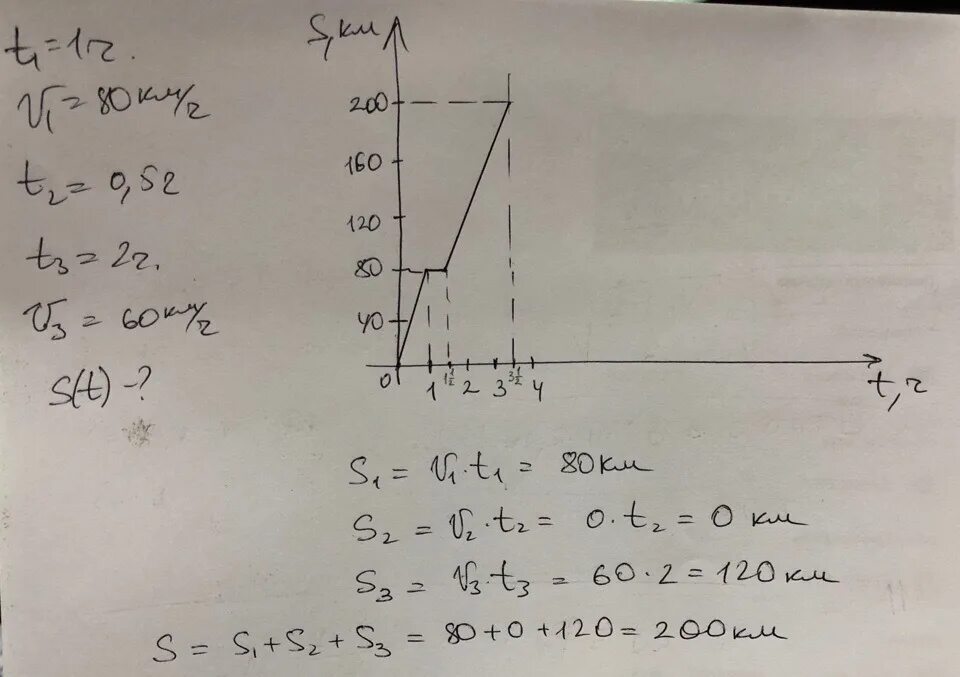 t₁ = 1ч.
V₁ = 80 км/ч
t₂ = 0,5ч
t₃ = 2ч.
V₃ = 60 км/ч
S(t) - ?
S, км
200
160
120
80
40
0 1 1½ 2 3 3½ 4
t, ч
S₁ = V₁·t₁ = 80 км
S₂ = V₂·t₂ = 0·t₂ = 0 км
S₃ = V₃·t₃ = 60·2 = 120 км
S = S₁ + S₂ + S₃ = 80 + 0 + 120 = 200 км